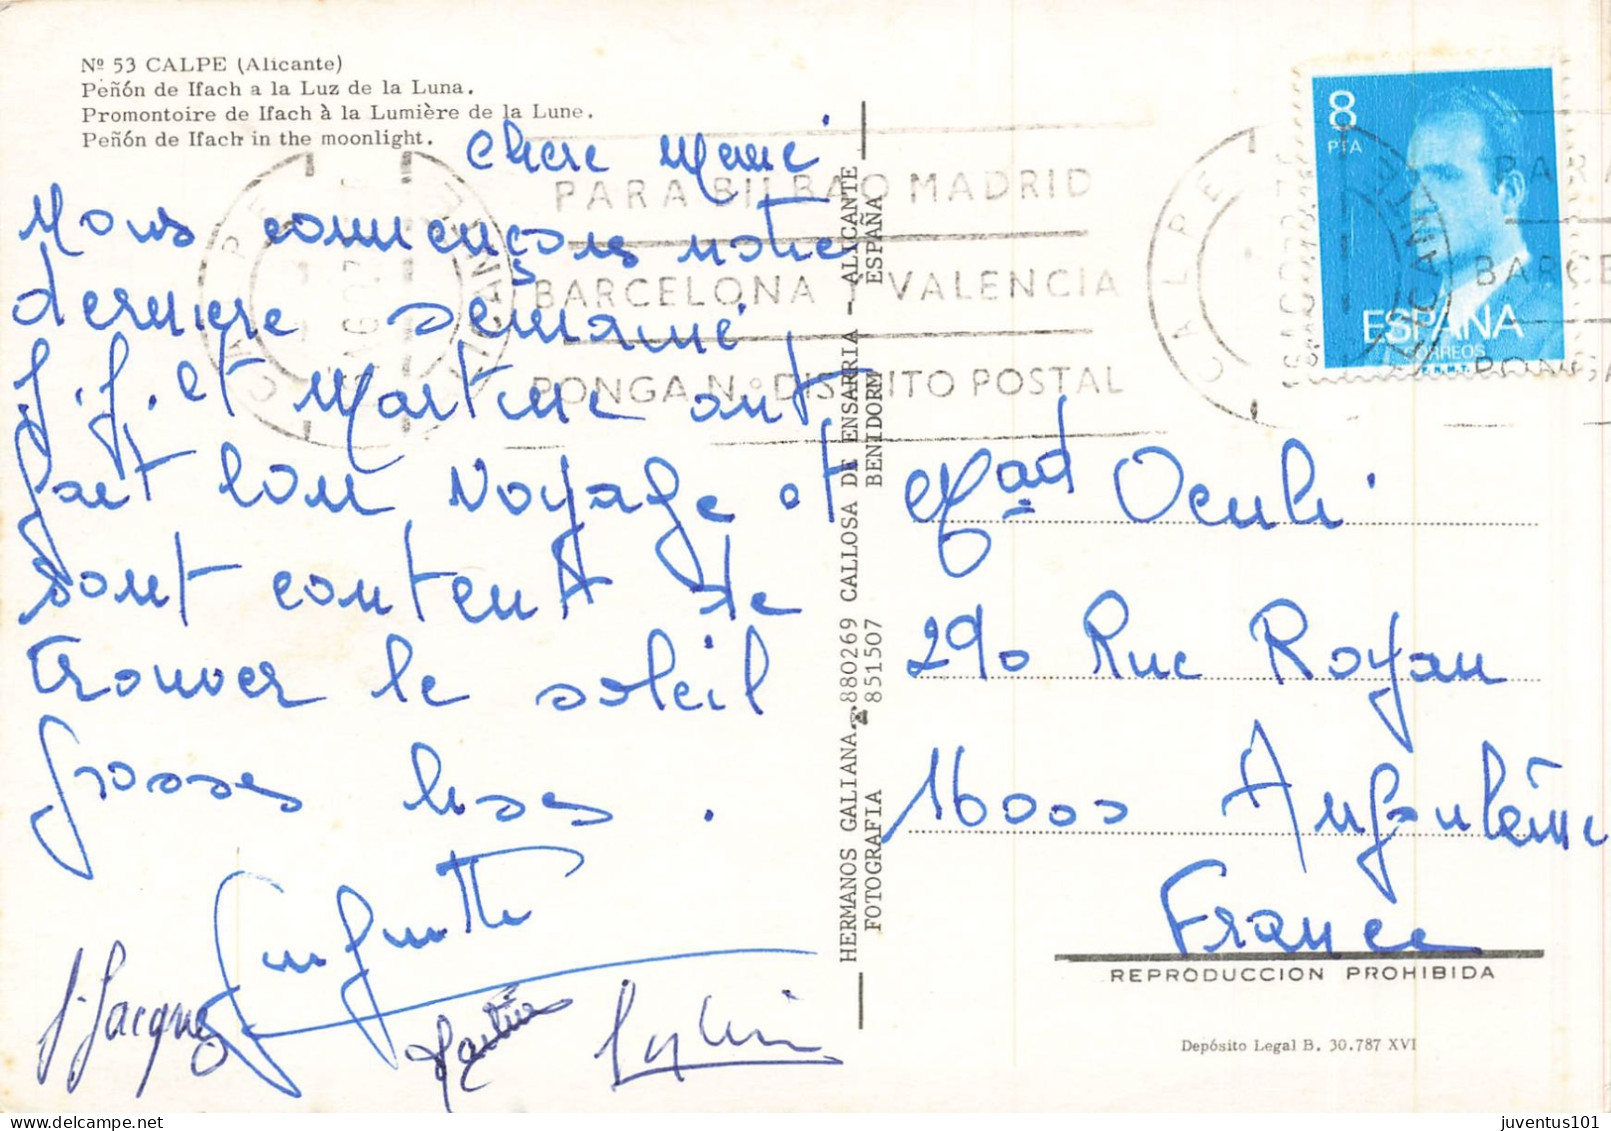 Nº 53 CALPE (Alicante)
Peñón de Ifach a la Luz de la Luna.
Promontoire de Ifach à la Lumière de la Lune.
Peñón de Ifach in the moonlight.
Chere Mamé
Nous commençons notre
derniere semaine
J.J. et Martine ont
fait bon voyage et
sont content de
trouver le soleil
Grosses bises.
J. Jacques
Martine
Sylvie
HERMANOS GALIANA. ☎ 880269 CALLOSA DE ENSARRIA - ALICANTE
FOTOGRAFIA 851507 BENIDORM ESPAÑA
PARA BILBAO MADRID
BARCELONA Y VALENCIA
PONGA N.º DISTRITO POSTAL
CALPE
ALICANTE
8
PTA
ESPAÑA
CORREOS
F.N.M.T.
CALPE
ALICANTE
PARA
BARCE
PONGA
Mad Oculi
290 Rue Royan
16000 Angoulême
France
REPRODUCCION PROHIBIDA
Depósito Legal B. 30.787 XVI
juventus101